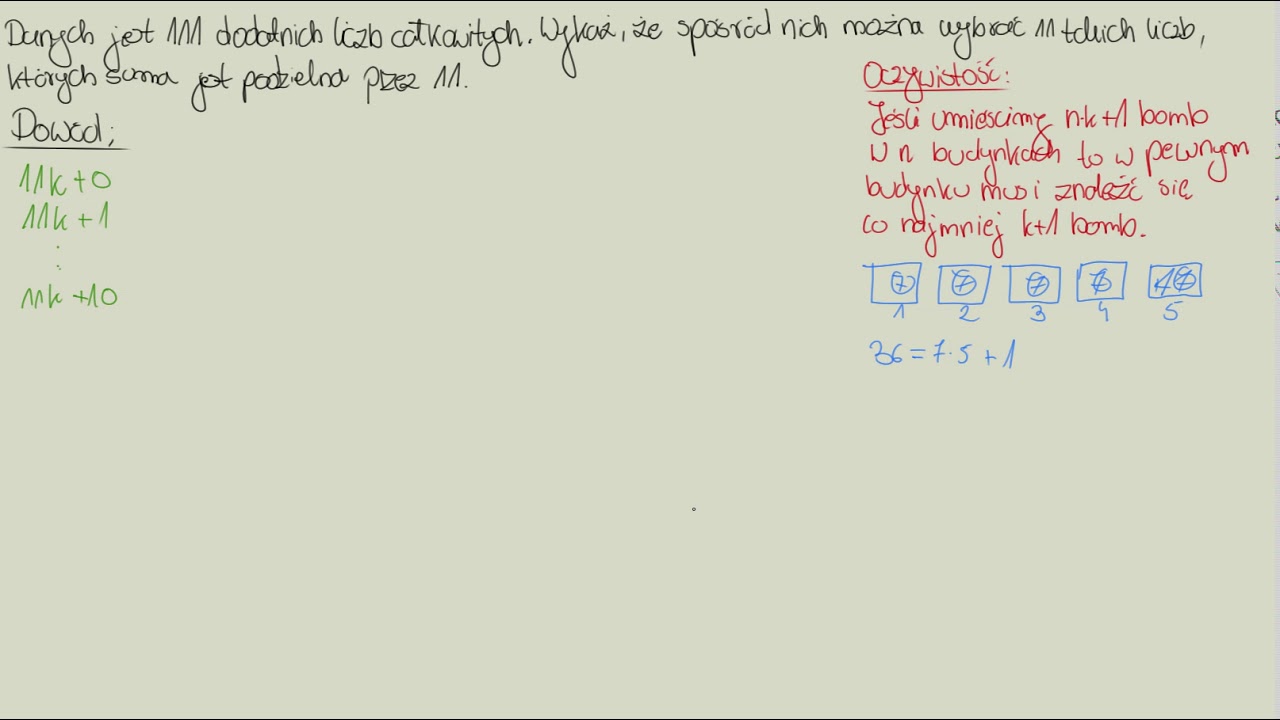 Danych jest 111 dodatnich liczb całkowitych. Wykaż, że spośród nich można wybrać 11 takich liczb,
których suma jest podzielna przez 11.
Dowód:
11k+0
11k+1
⋮
11k+10
Oczywistość:
Jeśli umieścimy n·k+1 bomb
w n budynkach to w pewnym
budynku musi znaleźć się
co najmniej k+1 bomb.
7 7 7 7
1 2 3 4 5
36=7·5+1